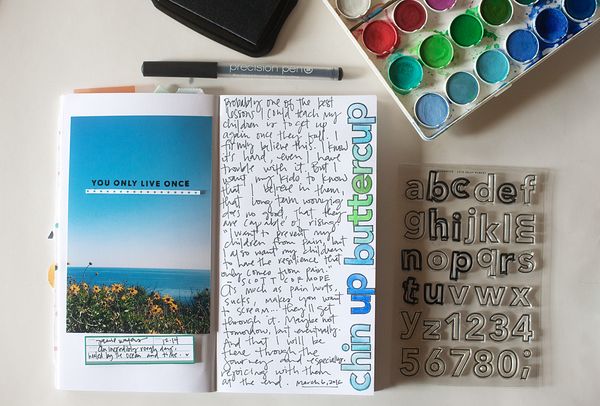 precision pen
YOU ONLY LIVE ONCE
10.14
An incredibly rough day,
healed by the ocean and tide.
Probably one of the best
lessons I could teach my
children is to get up
again once they fall. I
firmly believe this. I know
it's hard. even I have
trouble with it. But I
want my kids to know
that I believe in them,
that long term worrying
does no good, that they
are capable of rising.
"I want to prevent my
children from pain, but
I also want my children
to have the resilience that
only comes from pain."
SCOTT DERMODE
As much as pain hurts,
sucks, makes you want
to scream... they'll get
through it. Maybe not
tomorrow, but eventually.
And that I will be
there through the
journey and especially
rejoicing with them
at the end. March 6, 2016
chin up buttercup
abcdef
ghijklm
nopqrs
tuvwx
yz1234
56780;